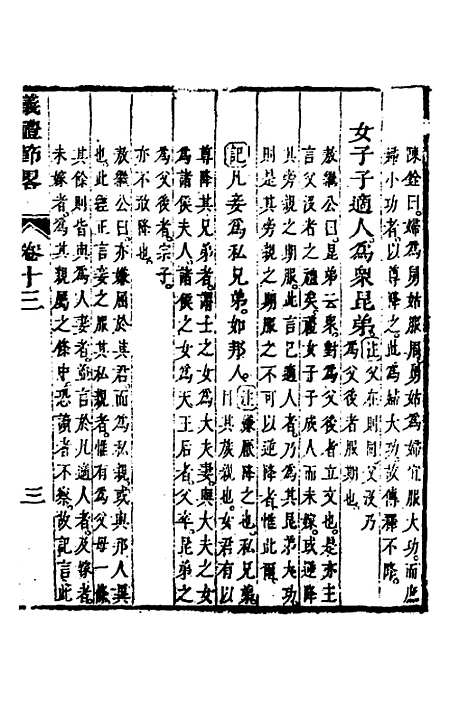 陳銓曰婦爲舅姑服周舅姑爲婦宜服大功而庶
婦小功者以尊降之此爲婦大功故傳釋不降
女子子適人爲衆昆弟 注父在則同父沒乃
爲父後者服期也
敖繼公曰昆弟云衆對爲父後者立文也是亦主
言父沒者之禮矣禮女子子成人而未嫁或逆降
其旁親之期服此已適人者乃爲其昆弟大功
則是其旁親之期服之不可以逆降者惟此爾
記凡妾爲私兄弟如邦人 注嫌厭降之也私兄弟
目其族親也女君有以
尊降其兄弟者謂士之女爲大夫妻與大夫之女
爲諸侯夫人諸侯之女爲天王后者父卒昆弟之
爲父後者宗子
亦不敢降也
敖繼公曰亦嫌屬於其君而爲私親或與邦人異
也此經正言妾之服其私親者惟有爲父母一條
其餘則皆與爲人妻者並言於凡適人者及嫁者
未嫁者爲其親屬之條中恐讀者不察故記言此
義禮節畧 卷十三 三